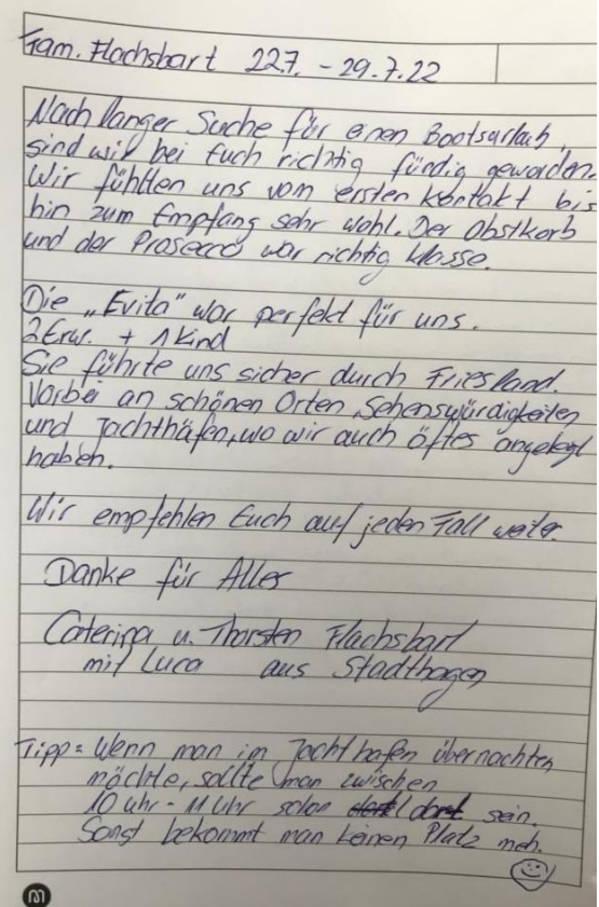 Fam. Flachsbart 22.7. - 29.7.22
Nach langer Suche für einen Bootsurlaub,
sind wir bei Euch richtig fündig geworden.
Wir fühlten uns vom ersten Kontakt bis
hin zum Empfang sehr wohl. Der Obstkorb
und der Prosecco war richtig klasse.
Die „Evita" war perfekt für uns.
2 Erw. + 1 Kind
Sie führte uns sicher durch Friesland.
Vorbei an schönen Orten, Sehenswürdigkeiten
und Jachthäfen, wo wir auch öftes angelegt
haben.
Wir empfehlen Euch auf jeden Fall weiter.
Danke für Alles
Caterina u. Thorsten Flachsbart
mit Luca aus Stadthagen
Tipp: Wenn man im Jachthafen übernachten
möchte, sollte man zwischen
10 uhr - 11 uhr schon dort sein.
Sonst bekommt man keinen Platz meh.